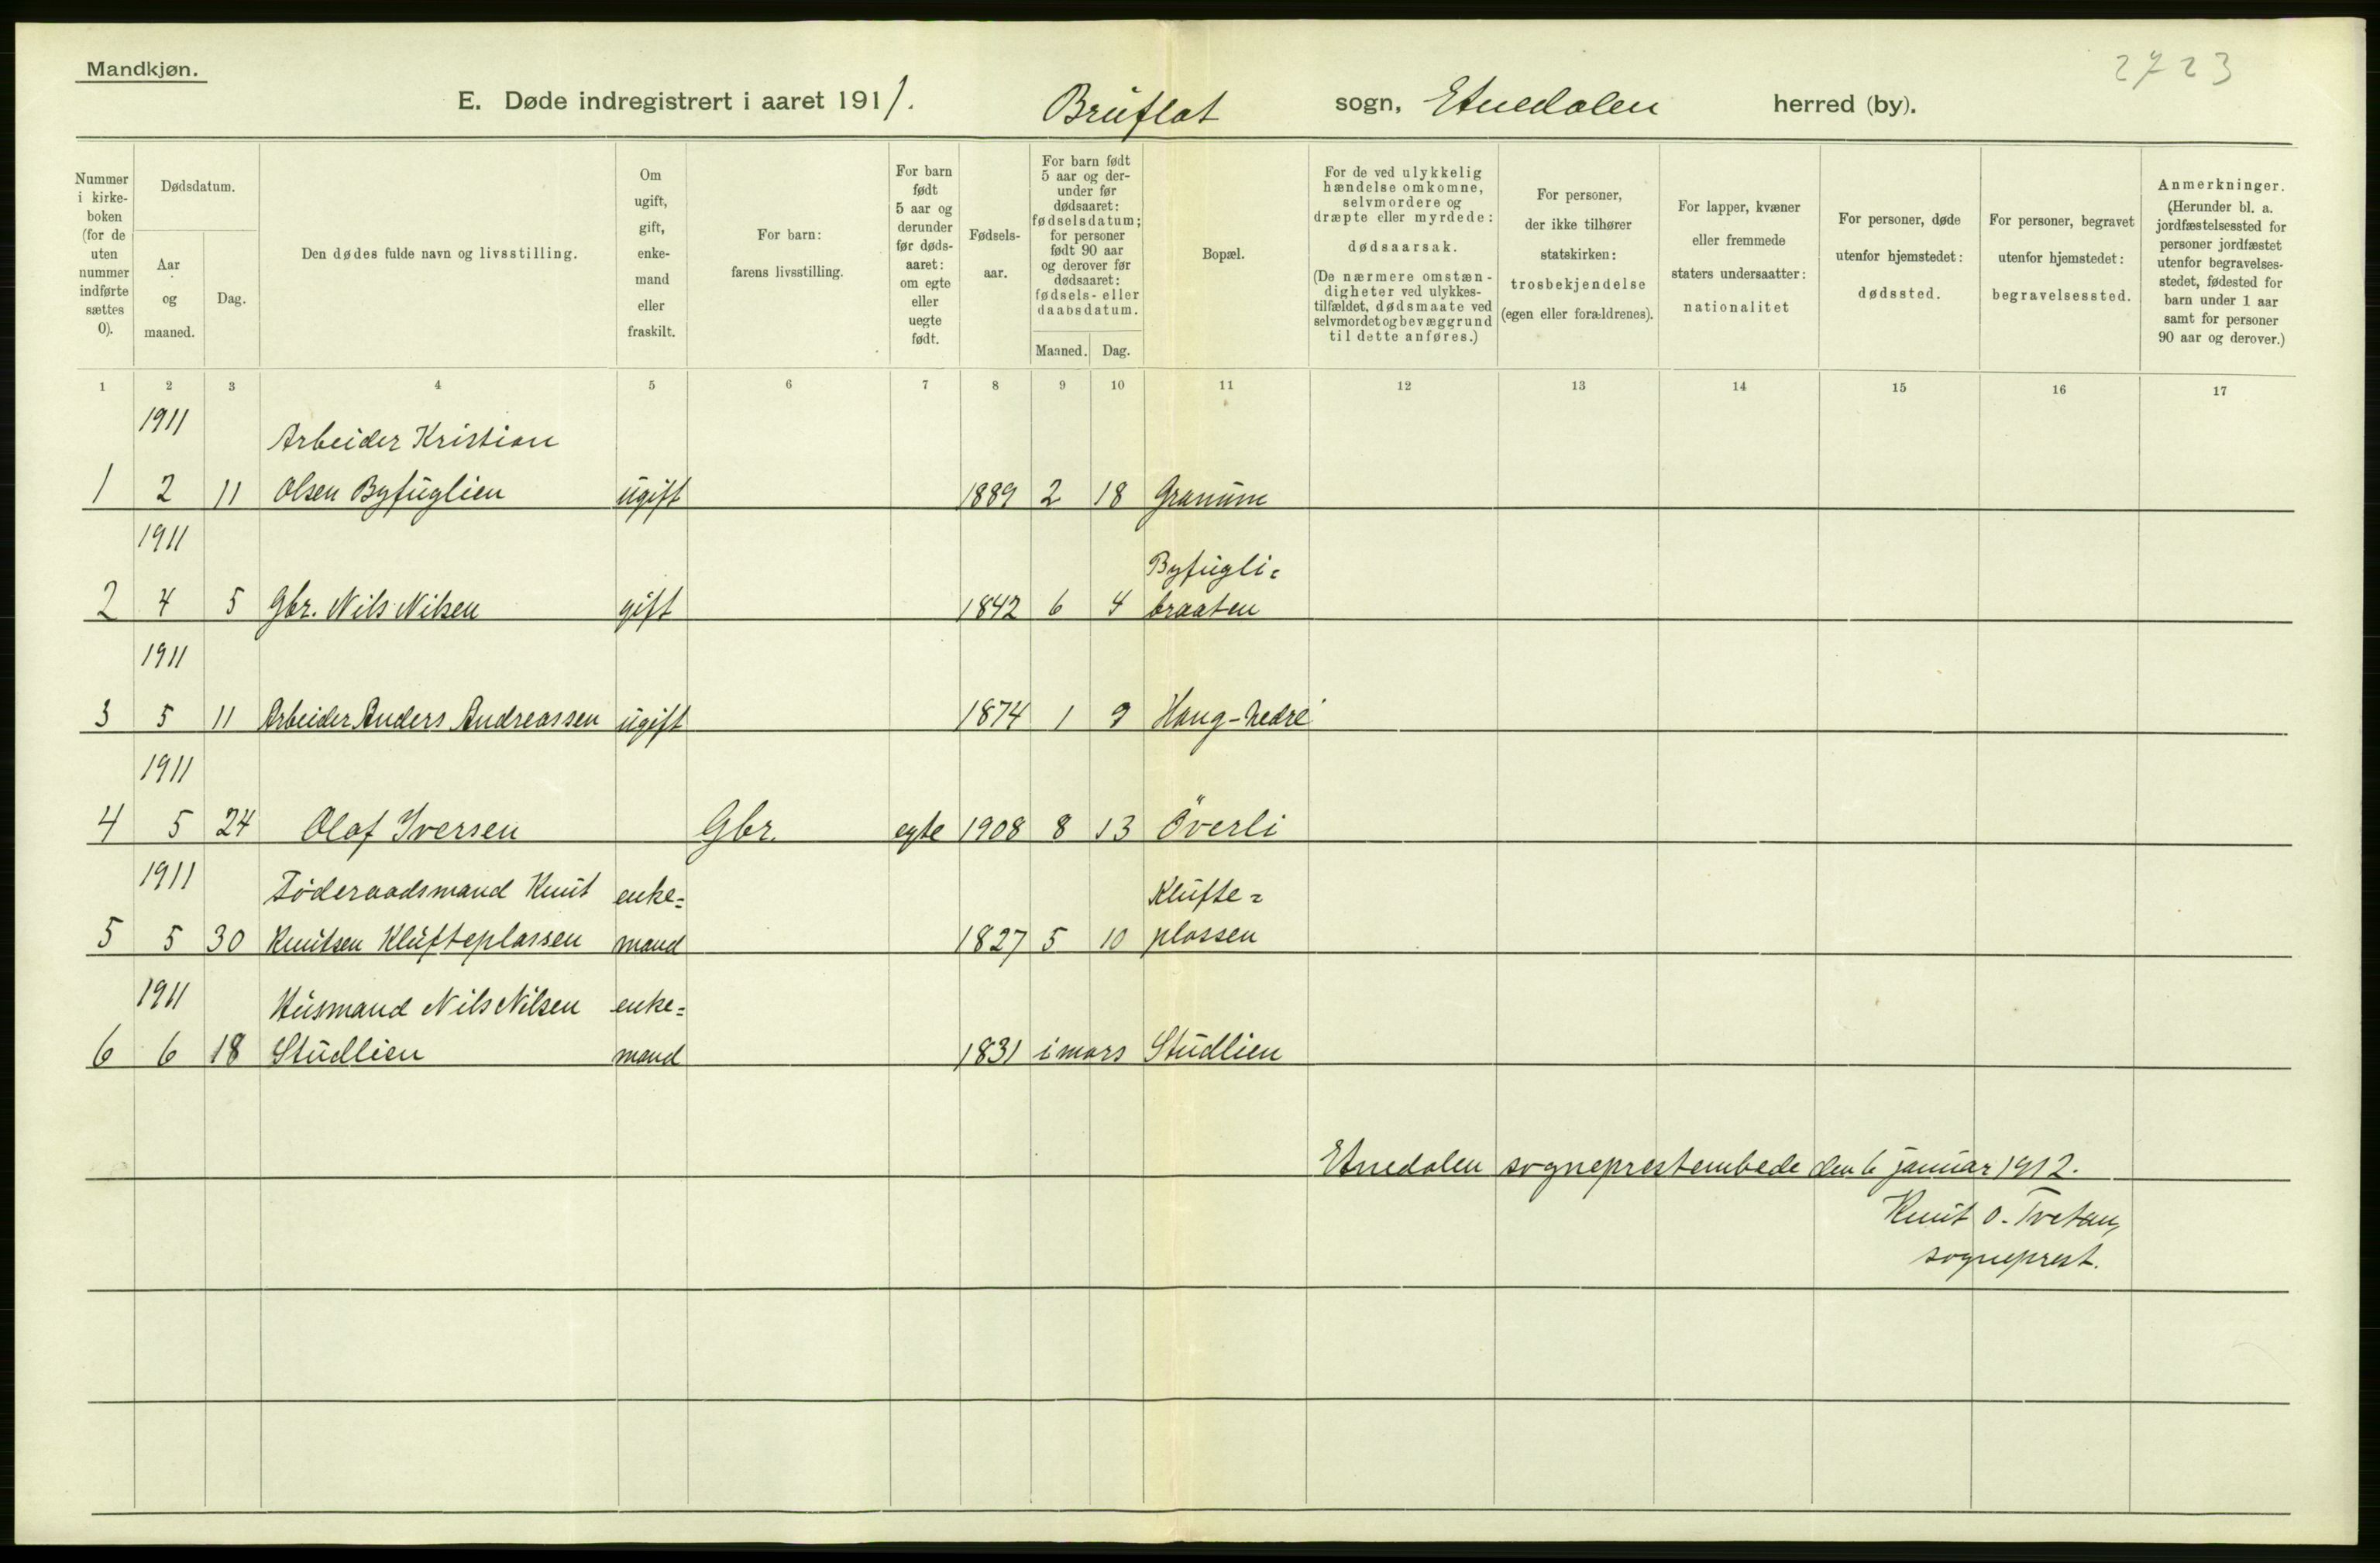 Mandkjøn.
2723
E. Døde indregistrert i aaret 1911. Bruflat sogn, Etnedalen herred (by).
Nummer i kirke-boken (for de uten nummer indførte sættes 0).
Dødsdatum.
Aar og maaned.
Dag.
Den dødes fulde navn og livsstilling.
Om ugift, gift, enke-mand eller fraskilt.
For barn: farens livsstilling.
For barn født 5 aar og derunder før døds-aaret: om egte eller uegte født.
Fødsels-aar.
For barn født 5 aar og der-under før dødsaaret: fødselsdatum; for personer født 90 aar og derover før dødsaaret: fødsels- eller daabsdatum.
Maaned. Dag.
Bopæl.
For de ved ulykkelig hændelse omkomne, selvmordere og dræpte eller myrdede: dødsaarsak. (De nærmere omstæn-digheter ved ulykkes-tilfældet, dødsmaate ved selvmordet og bevæggrund til dette anføres.)
For personer, der ikke tilhører statskirken: trosbekjendelse (egen eller forældrenes).
For lapper, kvæner eller fremmede staters undersaatter: nationalitet
For personer, døde utenfor hjemstedet: dødssted.
For personer, begravet utenfor hjemstedet: begravelsessted.
Anmerkninger. (Herunder bl. a. jordfæstelsessted for personer jordfæstet utenfor begravelses-stedet, fødested for barn under 1 aar samt for personer 90 aar og derover.)
1 2 3 4 5 6 7 8 9 10 11 12 13 14 15 16 17
1911 Arbeider Kristian
1 2 11 Olsen Byfuglien ugift 1889 2 18 Granum
1911 Byfugli=
2 4 5 Gbr. Nils Nilsen gift 1842 6 4 braaten
1911
3 5 11 Arbeider Anders Andreassen ugift 1874 1 9 Haug-nedre
1911
4 5 24 Olaf Iversen Gbr. egte 1908 8 13 Överli
1911 Føderaadsmand Knut enke= Klufte=
5 5 30 Knutsen Klufteplassen mand 1827 5 10 plassen
1911 Husmand Nils Nilsen enke=
6 6 18 Studlien mand 1831 i mars Studlien
Etnedalen sogneprestembede den 6 januar 1912.
Knut O. Tvetan,
sogneprest.